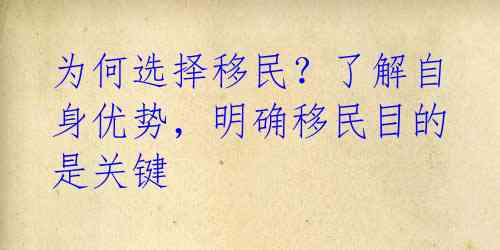 为何选择移民？了解自
身优势，明确移民目的
是关键